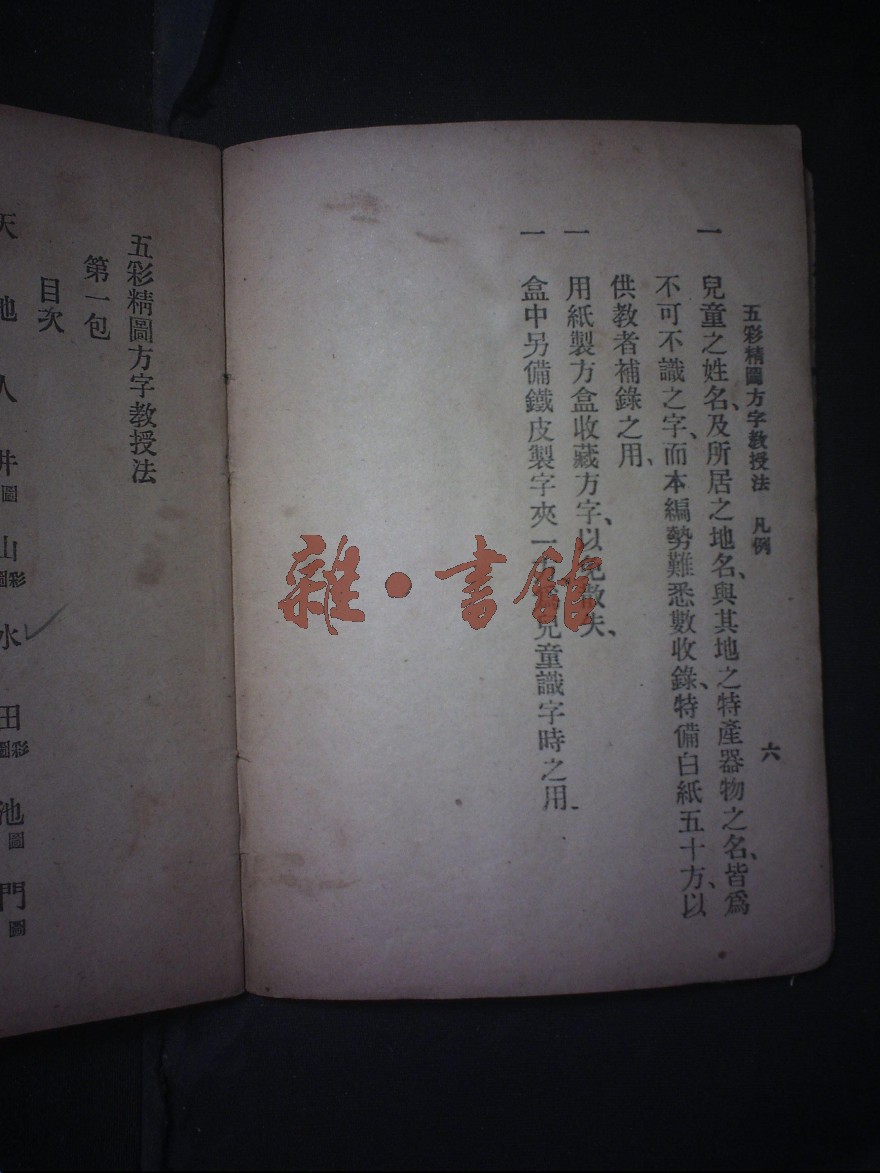 五彩精圖方字教授法 凡例 六
一 兒童之姓名、及所居之地名、與其地之特產器物之名、皆爲
不可不識之字、而本編勢難悉數收錄、特備白紙五十方、以
供教者補錄之用、
一 用紙製方盒收藏方字、以免散失、
一 盒中另備鐵皮製字夾一 兒童識字時之用
五彩精圖方字教授法
第一包
目次
天 地 人 井圖 山彩圖 水 田彩圖 池圖 門圖
雜·書館